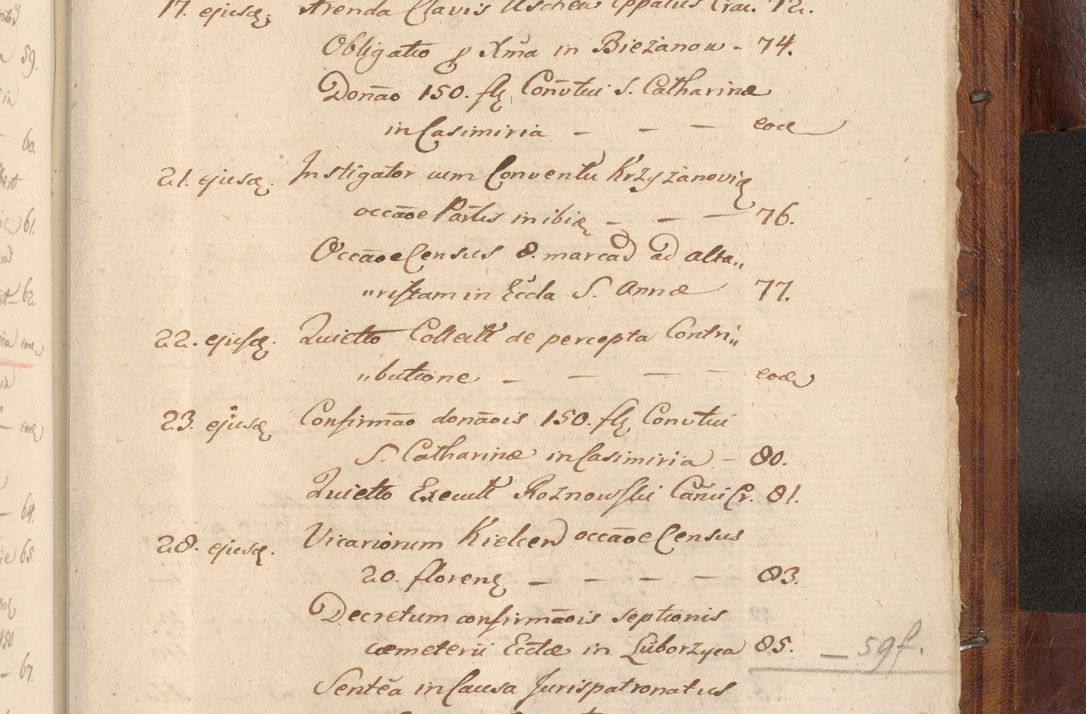 17. ejusq; Arenda Clavis Uscheu Eppatus Crac. 72.
Obligatio p Xma in Bieżanow - 74.
Donāo 150. flꝫ Convtui S. Catharinæ
in Casimiria - - - eod
21. ejusq; Instigator cum Conventu Krzyżanoviꝫ
occāoe Partis in ibiꝫ - - - 76.
Occāoe Census 8. marcaꝫ ad alta„
„ristam in Eccla S. Annæ 77.
22. ejusq; Quietto Collectt de percepta Contri„
„butione - - - - eod
23. ejusq; Confirmāo donāois 150. flꝫ Convtui
S. Catharinæ in Casimiria - 80.
Quietto Execult Roznowski Canci Cr. 81.
28. ejusq; Vicariorum Kielcen occāoe Census
20. florenꝫ - - - - 83.
Decretum confirmāois septionis
cœmeterii Ecclæ in Luborzyca 85. - 59f.
Sentēa in Causa Jurispatronatus
59.
60.
61.
62.
eod
64.
65.
150
- 67.